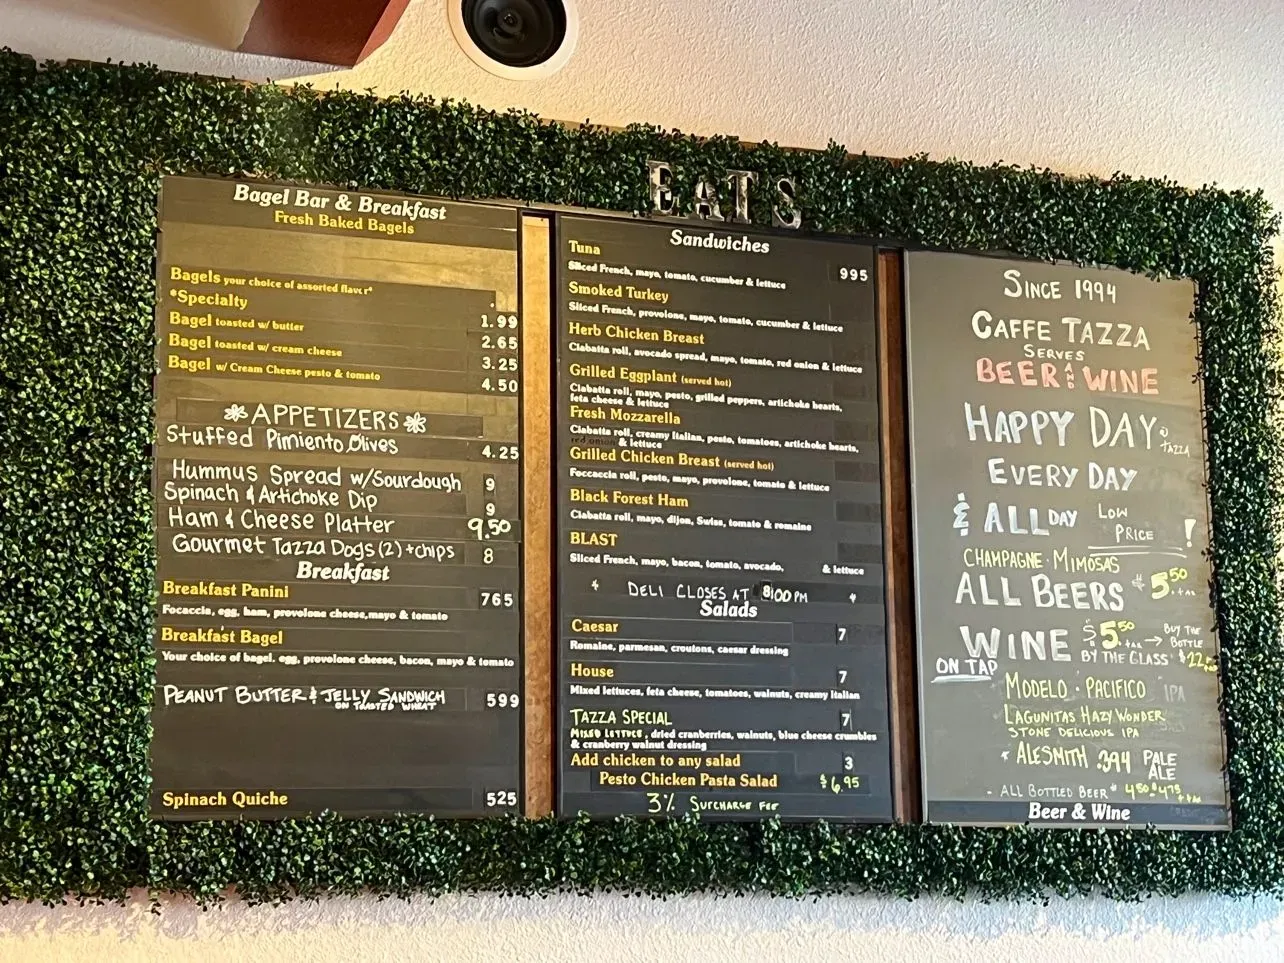 EATS
Bagel Bar & Breakfast
Fresh Baked Bagels
Bagels your choice of assorted flavor*
*Specialty
1.99
Bagel toasted w/ butter
2.65
Bagel toasted w/ cream cheese
3.25
Bagel w/ Cream Cheese pesto & tomato
4.50
APPETIZERS
Stuffed Pimiento Olives 4.25
Hummus Spread w/Sourdough 9
Spinach & Artichoke Dip 9
Ham & Cheese Platter 9.50
Gourmet Tazza Dogs (2) + chips 8
Breakfast
Breakfast Panini 765
Focaccia, egg, ham, provolone cheese, mayo & tomato
Breakfast Bagel
Your choice of bagel. egg, provolone cheese, bacon, mayo & tomato
PEANUT BUTTER & JELLY SANDWICH 599
ON TOASTED WHEAT
Spinach Quiche 525
Sandwiches
Tuna 995
Sliced French, mayo, tomato, cucumber & lettuce
Smoked Turkey
Sliced French, provolone, mayo, tomato, cucumber & lettuce
Herb Chicken Breast
Ciabatta roll, avocado spread, mayo, tomato, red onion & lettuce
Grilled Eggplant (served hot)
Ciabatta roll, mayo, pesto, grilled peppers, artichoke hearts,
feta cheese & lettuce
Fresh Mozzarella
Ciabatta roll, creamy Italian, pesto, tomatoes, artichoke hearts,
red onion & lettuce
Grilled Chicken Breast (served hot)
Foccaccia roll, pesto, mayo, provolone, tomato & lettuce
Black Forest Ham
Ciabatta roll, mayo, dijon, Swiss, tomato & romaine
BLAST
Sliced French, mayo, bacon, tomato, avocado, & lettuce
DELI CLOSES AT 8:00 PM
Salads
Caesar 7
Romaine, parmesan, croutons, caesar dressing
House 7
Mixed lettuces, feta cheese, tomatoes, walnuts, creamy Italian
TAZZA SPECIAL 7
MIXED LETTUCE, dried cranberries, walnuts, blue cheese crumbles
& cranberry walnut dressing
Add chicken to any salad 3
Pesto Chicken Pasta Salad $6.95
3% SURCHARGE FEE
SINCE 1994
CAFFE TAZZA
SERVES
BEER AND WINE
HAPPY DAY @ TAZZA
EVERY DAY
& ALL DAY LOW PRICE !
CHAMPAGNE · MIMOSAS
ALL BEERS $5.50 + tax
WINE $5.50 + tax → BUY THE BOTTLE
BY THE GLASS
ON TAP
MODELO · PACIFICO IPA
LAGUNITAS HAZY WONDER
STONE DELICIOUS IPA
* ALESMITH .394 PALE ALE
- ALL BOTTLED BEER
Beer & Wine